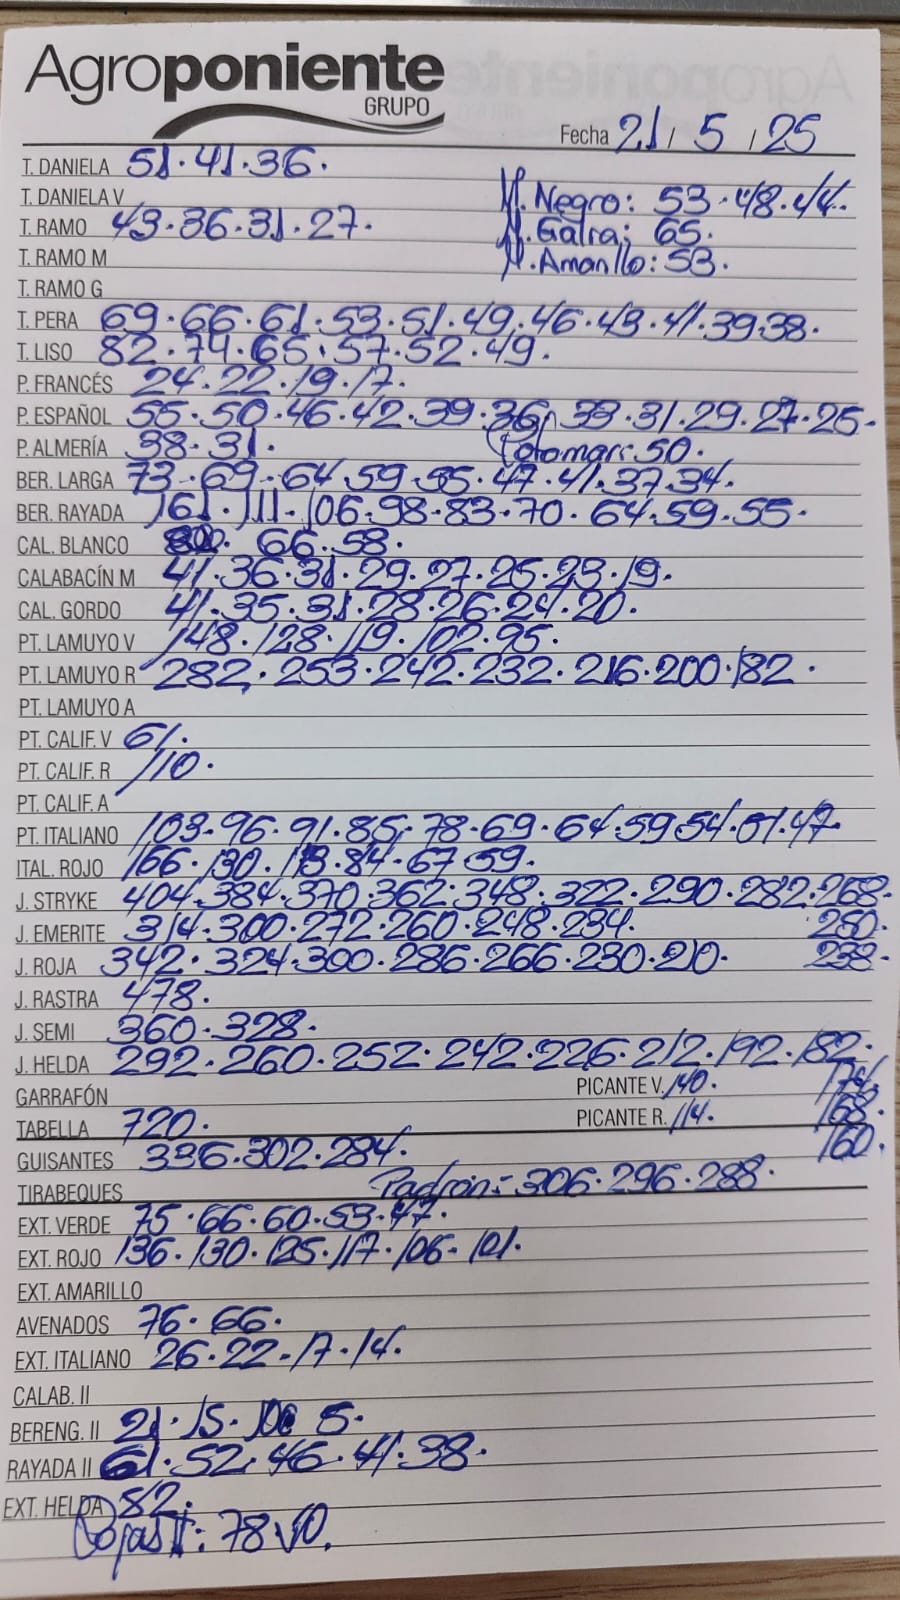 Agroponiente
GRUPO
Fecha 21 / 5 / 25
T. DANIELA 51.41.36.
T. DANIELA V
M. Negro: 53.48.44.
T. RAMO 43.36.31.27.
M. Galia: 65.
T. RAMO M
M. Amarillo: 53.
T. RAMO G
T. PERA 69.66.61.53.51.49.46.43.41.39.38.
T. LISO 82.74.65.57.52.49.
P. FRANCÉS 24.22.19.17.
P. ESPAÑOL 55.50.46.42.39.36.33.31.29.27.25.
P. ALMERÍA 38.31. 50.
BER. LARGA 73.69.64.59.55.47.41.37.34.
BER. RAYADA 161.111.106.98.83.70.64.59.55.
CAL. BLANCO 66.58.
CALABACÍN M 41.36.31.29.27.25.23.19.
CAL. GORDO 41.35.31.28.26.24.20.
PT. LAMUYO V 148.128.119.102.95.
PT. LAMUYO R 282.253.242.232.216.200.182.
PT. LAMUYO A
PT. CALIF. V 61.
PT. CALIF. R 110.
PT. CALIF. A
PT. ITALIANO 103.96.91.85.78.69.64.59.54.51.47.
ITAL. ROJO 166.130. 84.67.59.
J. STRYKE 404.384.370.362.348.322.290.282.268.
250.
J. EMERITE 314.300.272.260.248.234.
238.
J. ROJA 342.324.300.286.266.230.210.
J. RASTRA 478.
J. SEMI 360.328.
J. HELDA 292.260.252.242.226.212.192.182.
174.
GARRAFÓN PICANTE V. 140.
168.
TABELLA 720. PICANTE R. 114.
160.
GUISANTES 336.302.284.
TIRABEQUES Padrón: 306.296.288.
EXT. VERDE 75.66.60.53.47.
EXT. ROJO 136.130.125.117.106.101.
EXT. AMARILLO
AVENADOS 76.66.
EXT. ITALIANO 26.22.17.14.
CALAB. II
BERENG. II 21.15. 5.
RAYADA II 61.52.46.41.38.
EXT. HELDA 82.
Rojas II: 78.